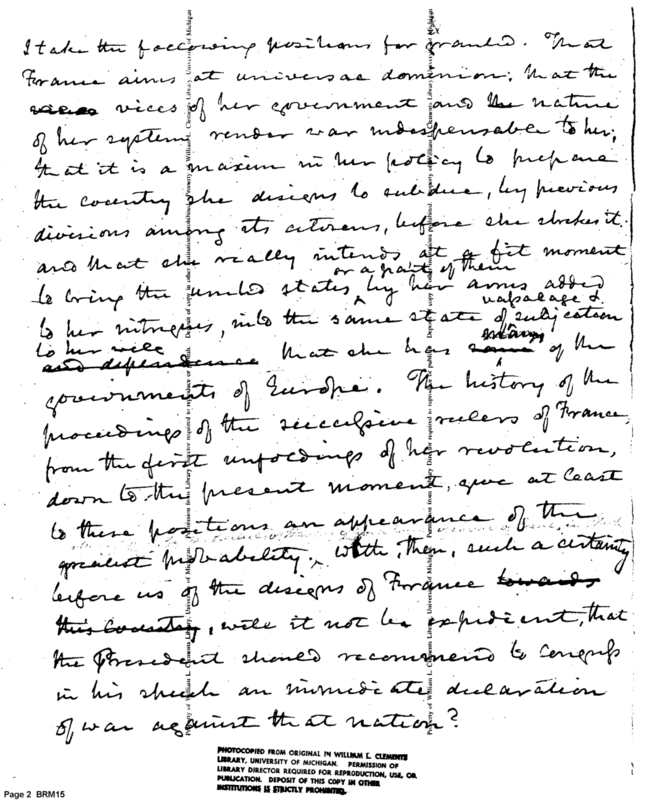 I take the following positions for granted. That
France aims at universal dominion; that the
vices of her government and the nature
of her system render war indispensable to her;
that it is a maxim in her policy to prepare
the country she designs to subdue, by previous
divisions among its citizens, before she strikes it.
and that she really intends at a fit moment
or a part of them
to bring the united states, by her arms added
vassalage &
to her intrigues, into the same state of subjection
to her will many
and dependence that she has some of the
governments of Europe. The history of the
proceedings of the successive rulers of France,
from the first unfoldings of her revolution,
down to the present moment, give at least
to these positions an appearance of the
greatest probability. With, then, such a certainty
before us of the designs of France towards
this Country, will it not be expedient, that
the President should recommend to Congress
in his speech an immediate declaration
of war against that nation?
Property of William L. Clements Library, University of Michigan
PHOTOCOPIED FROM ORIGINAL IN WILLIAM L. CLEMENTS
LIBRARY, UNIVERSITY OF MICHIGAN. PERMISSION OF
LIBRARY DIRECTOR REQUIRED FOR REPRODUCTION, USE, OR
PUBLICATION. DEPOSIT OF THIS COPY IN OTHER
INSTITUTIONS IS STRICTLY PROHIBITED.
Page 2 BRM15